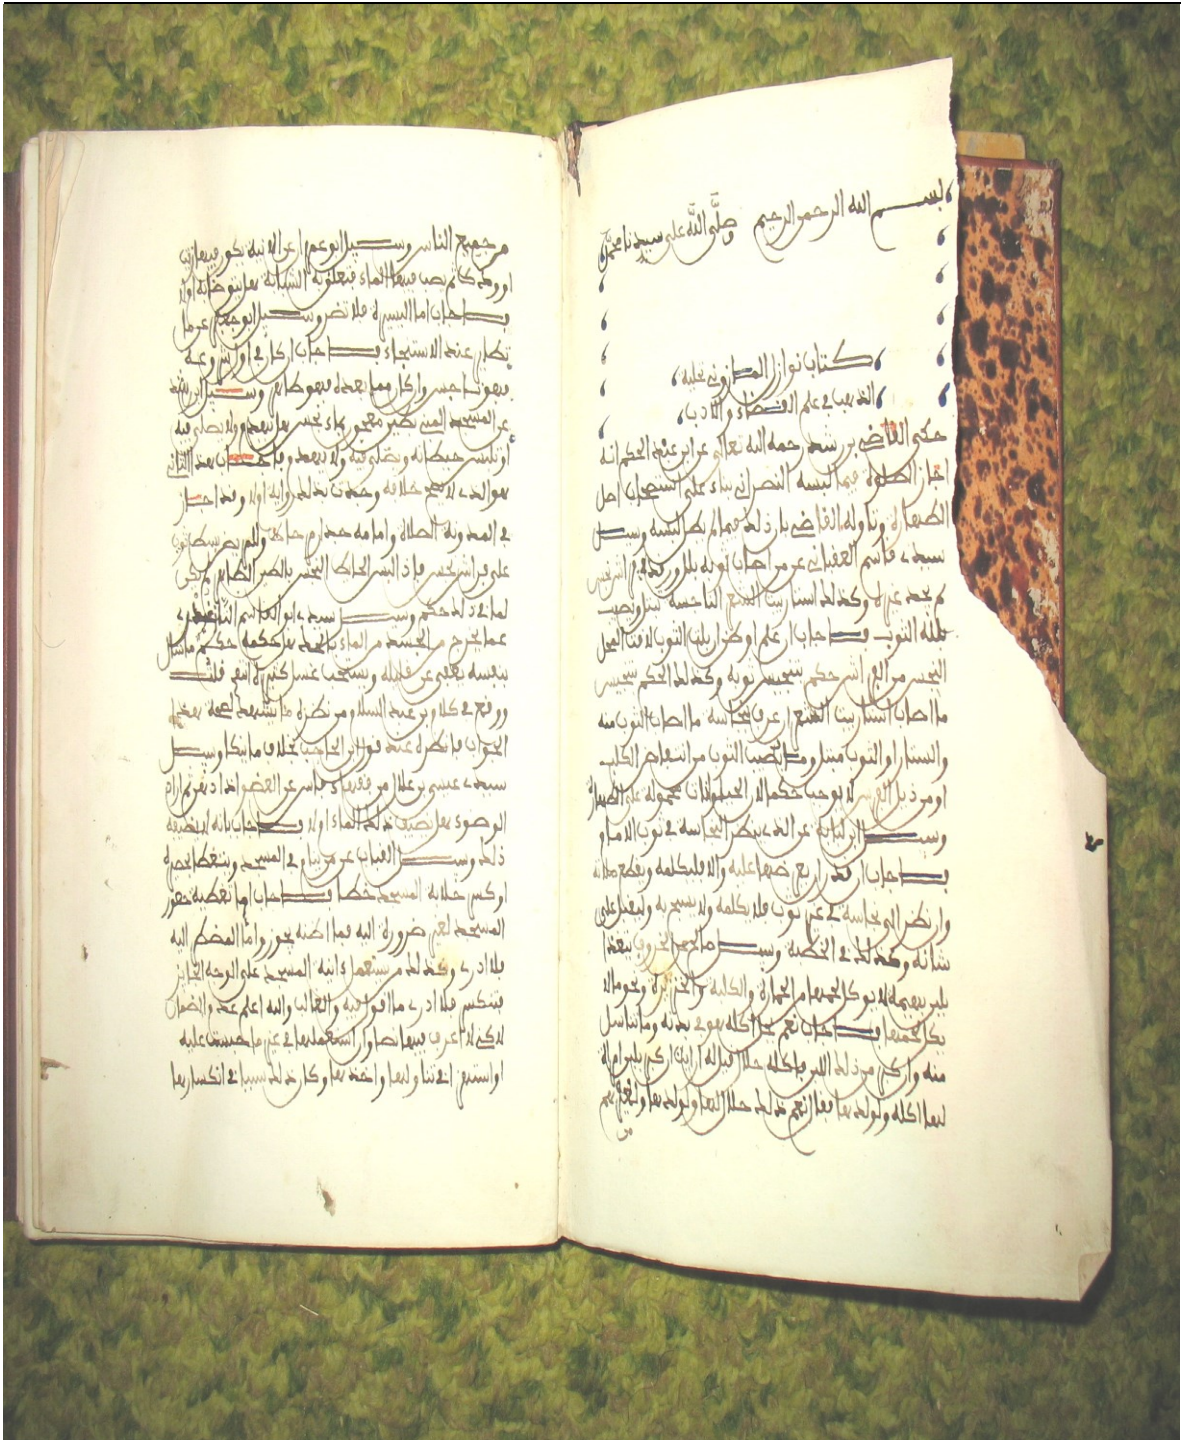 بسم الله الرحمن الرحيم وصلى الله على سيدنا محمد
كتاب نوازل المازوني تحلية
الذهب في علم القضاء والادب
حكى القاضي بن رشد رحمه الله تعالى عن ابن عبد الحكم انه
اجاز الصلوة فيما لبسه النصراني بناء على استصحاب اصل
الطهارة وتاوله القاضي بان ذلك فيما لم يطل لبسه وسئل
سيدي قاسم العقباني عن من اصاب ثوبه بلل فراش نجس
لم يجد غيره وكذلك استار بيت الشمع الناجسة
بلله الثوب فاجاب ان علم او ظن ان بلل الثوب لاقى المحل
النجس من الفراش حكم بتنجيس ثوبه وكذلك الحكم بتنجيس
ما اصاب استار بيت الشمع ان عرف نجاسة ما اصاب الثوب منه
والستار او الثوب مبتل وما يصيب الثوب من انتفاض الكلب
او من ذيل الفرس لا يوجب حكما لان الحيوانات محمولة على الطهارة
وسئل ابن لبابة عن الذي ينظر النجاسة في ثوب الامام
فاجاب ان قدر ان يفهمها عليه والا فليكلمه ويقطع صلاته
وان نظر الى نجاسة في غير ثوب فلا يكلمه ولا يسبح به وليقبل على
شانه وكذلك في الخطبة وسئل الخروف يتغذا
بلبن بهيمة لا يوكل لحمها من الحمارة والكلبة والخنزيرة ونحو مالا
يكل لحمها فاجاب نعم يحل اكله هو في بدنه وما تناسل
منه وان كبر من ذلك اللبن فاكله حلال قيل له ارايت ان كبر بلبن امراة
لها اكله ولولدها فقال نعم ذلك حلال لها ولولدها ولغيرهم
من
من جميع الناس وسئل ابو عمران عن الانية يكون فيها زيت
او ودك ثم يصب فيها الماء فيعلو به الشبابة هل يتوضا به اولا
فاجاب اما اليسيرة فلا تضر وسئل ابو جعفر عن ما
تطاير عند الاستنجاء فاجاب ان كان في اول شروعه
فهو نجس وان كان مما بعده فهو طاهر وسئل ابن رشد
عن المسجد المبني بطين معجون بماء نجس هل يهدم ولا يصلى فيه
او تلبس حيطانه ويصلى فيه ولا يهدم فاجاب بهذا الثاني
هو الذي لا يصح خلافه وجدت بذلك رواية اولا وقد اجاز
في المدونة الصلاة وامامه جدار مرحاض ولل مريض بسط ثوب
على فراش نجس فاذا البس الحائط النجس بالطين الطاهر لم يكن
لما في ذلك حكم وسئل سيدي ابو القاسم
عما يخرج من الجسد من الماء بالحك هل حكمه حكم ما سال
بنفسه يعفى عن قليله ويستحب غسل كثيره انتهى قلت
ووقع في كلام بن عبد السلام من نظره ما يشهد لصحة هذا
الجواب فانظره عند قول ابن الحاجب بخلاف ما ينكا وسئل
سيدي عيسى بن علال من فقهاء فاس عن العضو اذا
الوضوء هل يضيف ذلك الماء اولا فاجاب بانه لا يضيفه
ذلك وسئل القباب عن من ينام في المسجد ويتغطا بحصيره
او كسر حلابة المسجد خطا فاجاب اما تغطيه بحصر
المسجد لغير ضرورة اليه فما اظنه يجوز واما المضطر اليه
فلا ادري وكذلك من يستعمل انية المسجد على الوجه الجائز
فتنكسر فلا ادري ما اقول فيه والغالب والله اعلم عدم الضمان
لاكن لا اعرف فيها نصا وان استعملها في غير ما حبست عليه
او استهزا في تناولها واخذها وكان ذلك سببا في انكسارها